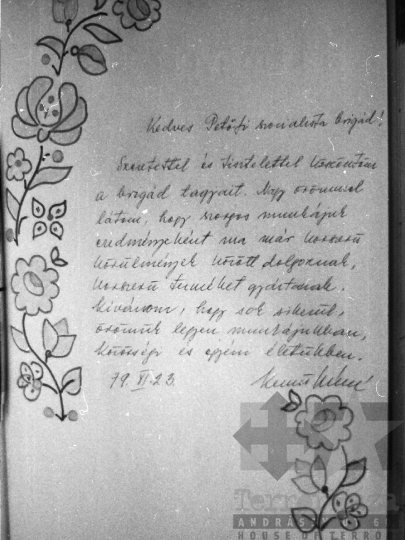 Kedves Petőfi szocialista brigád!
Szeretettel és tisztelettel köszöntöm
a brigád tagjait. Nagy örömmel
látom, hogy szorgos munkájuk
eredményeként ma már korszerű
körülmények között dolgoznak,
korszerű terméket gyártanak.
Kívánom, hogy sok sikerük,
örömük legyen munkájukban,
közösségi és egyéni életükben.
79. XI. 23.
ANDRÁSSY ÚT 60
HOUSE OF TERROR